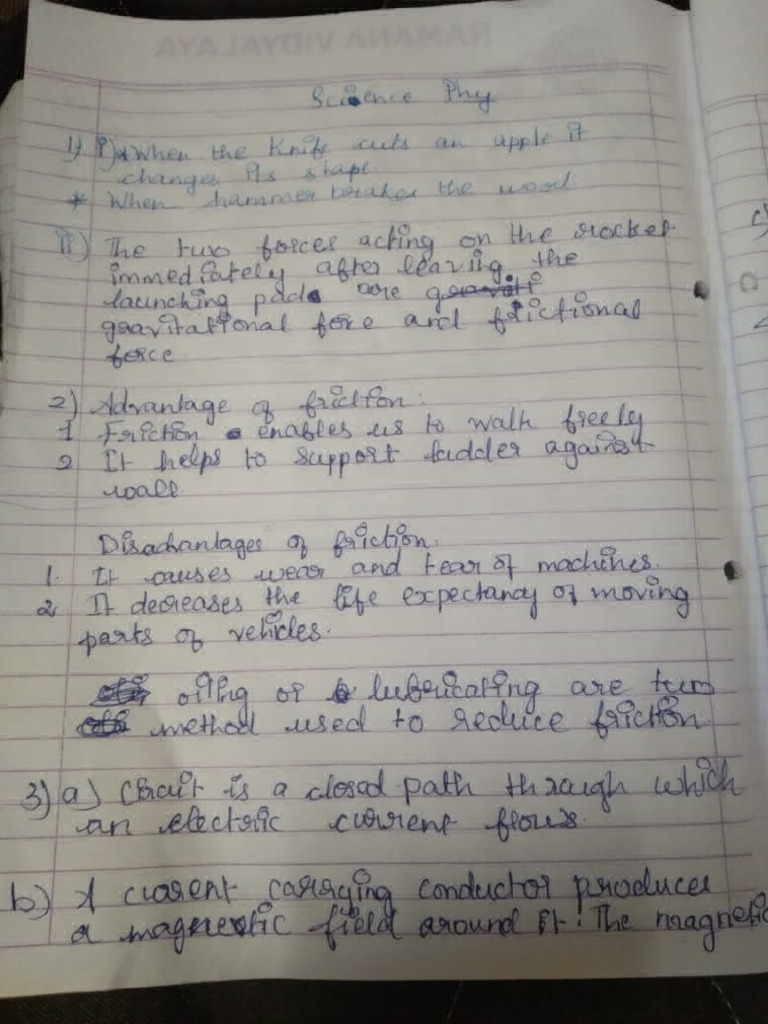 RAMANA VIDYALAYA
Science Phy
1) i) * When the Knife cuts an apple it
changes its shape.
* When hammer brakes the wood.
ii) The two forces acting on the rocket
immediately after leaving the
launching pad are gravati
gravitational force and frictional
force
2) Advantage of friction:
1 Friction enables us to walk freely
2 It helps to support ladder against
wall.
Disadvantages of friction:
1. It causes wear and tear of machines.
2 It decreases the life expectancy of moving
parts of vehicles.
oiling or lubricating are two
method used to reduce friction
3) a) Circuit is a closed path through which
an electric current flows.
b) A current carrying conductor produces
a magnetic field around it. The magnetic